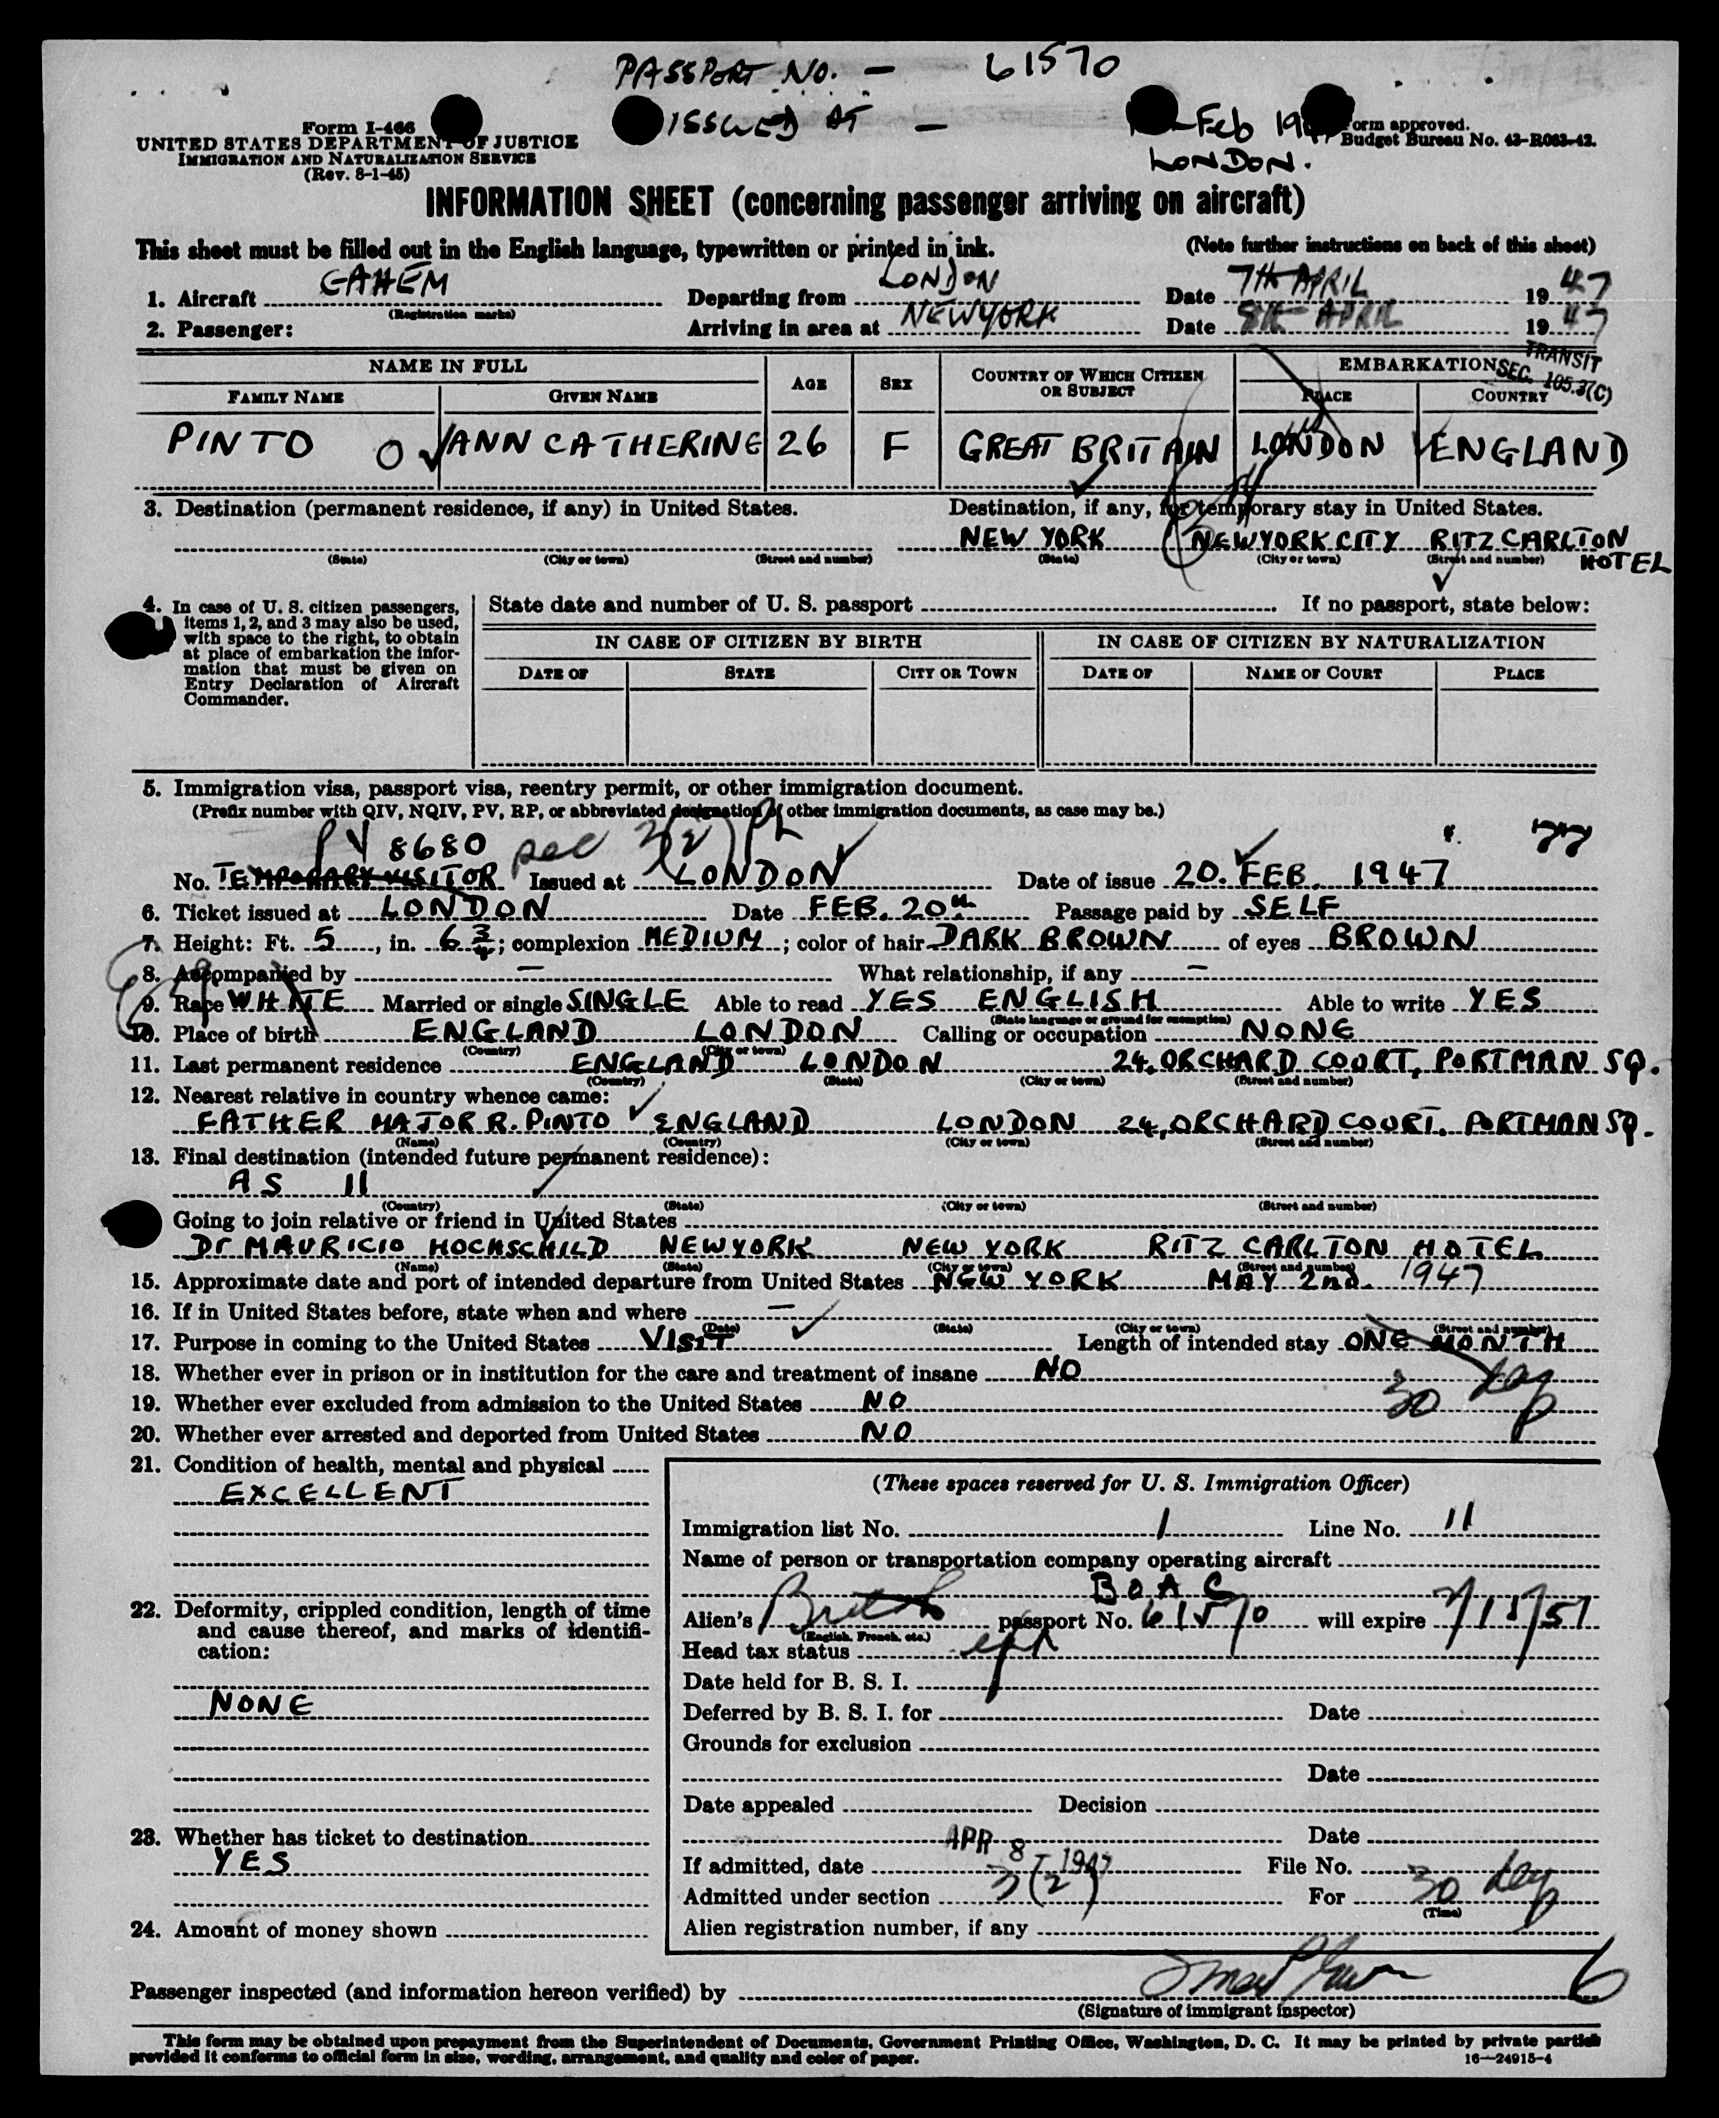 PASSPORT NO. — 61570
ISSUED AT — Feb
LONDON.
Form I-466
UNITED STATES DEPARTMENT OF JUSTICE
IMMIGRATION AND NATURALIZATION SERVICE
(Rev. 8-1-45)
Form approved.
Budget Bureau No. 43-R083-42.
INFORMATION SHEET (concerning passenger arriving on aircraft)
This sheet must be filled out in the English language, typewritten or printed in ink. (Note further instructions on back of this sheet)
1. Aircraft GAHEM Departing from LONDON Date 7TH APRIL 1947
(Registration marks)
2. Passenger: Arriving in area at NEWYORK Date 8th APRIL 1947
TRANSIT
SEC. 105.3(C)
NAME IN FULL AGE SEX COUNTRY OF WHICH CITIZEN OR SUBJECT EMBARKATION
FAMILY NAME GIVEN NAME PLACE COUNTRY
PINTO O ANN CATHERINE 26 F GREAT BRITAIN LONDON ENGLAND
3. Destination (permanent residence, if any) in United States. Destination, if any, for temporary stay in United States.
NEW YORK NEWYORK CITY RITZ CARLTON HOTEL
(State) (City or town) (Street and number) (State) (City or town) (Street and number)
4. In case of U. S. citizen passengers, items 1, 2, and 3 may also be used, with space to the right, to obtain at place of embarkation the information that must be given on Entry Declaration of Aircraft Commander.
State date and number of U. S. passport If no passport, state below:
IN CASE OF CITIZEN BY BIRTH IN CASE OF CITIZEN BY NATURALIZATION
DATE OF STATE CITY OR TOWN DATE OF NAME OF COURT PLACE
5. Immigration visa, passport visa, reentry permit, or other immigration document.
(Prefix number with QIV, NQIV, PV, RP, or abbreviated designation of other immigration documents, as case may be.)
PV 8680 sec 3(2) 77
No. TEMPORARY VISITOR Issued at LONDON Date of issue 20. FEB. 1947
6. Ticket issued at LONDON Date FEB. 20th Passage paid by SELF
7. Height: Ft. 5, in. 6 3/4; complexion MEDIUM; color of hair DARK BROWN of eyes BROWN
8. Accompanied by — What relationship, if any —
9. Race WHITE Married or single SINGLE Able to read YES ENGLISH Able to write YES
(State language or ground for exemption)
10. Place of birth ENGLAND LONDON Calling or occupation NONE
(Country) (City or town)
11. Last permanent residence ENGLAND LONDON 24, ORCHARD COURT, PORTMAN SQ.
(Country) (State) (City or town) (Street and number)
12. Nearest relative in country whence came:
FATHER MAJOR R. PINTO ENGLAND LONDON 24, ORCHARD COURT. PORTMAN SQ.
(Name) (Country) (City or town) (Street and number)
13. Final destination (intended future permanent residence):
AS 11
(Country) (State) (City or town) (Street and number)
Going to join relative or friend in United States
Dr MAURICIO HOCHSCHILD NEWYORK NEW YORK RITZ CARLTON HOTEL
(Name) (State) (City or town) (Street and number)
15. Approximate date and port of intended departure from United States NEW YORK MAY 2nd. 1947
16. If in United States before, state when and where —
(Date) (State) (City or town) (Street and number)
17. Purpose in coming to the United States VISIT Length of intended stay ONE MONTH
30 day
18. Whether ever in prison or in institution for the care and treatment of insane NO
19. Whether ever excluded from admission to the United States NO
20. Whether ever arrested and deported from United States NO
21. Condition of health, mental and physical
EXCELLENT
22. Deformity, crippled condition, length of time and cause thereof, and marks of identification:
NONE
23. Whether has ticket to destination
YES
24. Amount of money shown
(These spaces reserved for U. S. Immigration Officer)
Immigration list No. 1 Line No. 11
Name of person or transportation company operating aircraft
BOAC
Alien's British passport No. 61570 will expire
(English, French, etc.)
Head tax status
Date held for B. S. I.
Deferred by B. S. I. for Date
Grounds for exclusion
Date
Date appealed Decision
Date
If admitted, date APR 8 - 1947 File No.
Admitted under section 3(2) For 30 day
(Time)
Alien registration number, if any
Passenger inspected (and information hereon verified) by
6
(Signature of immigrant inspector)
This form may be obtained upon prepayment from the Superintendent of Documents, Government Printing Office, Washington, D. C. It may be printed by private parties
provided it conforms to official form in size, wording, arrangement, and quality and color of paper. 16—24915-4